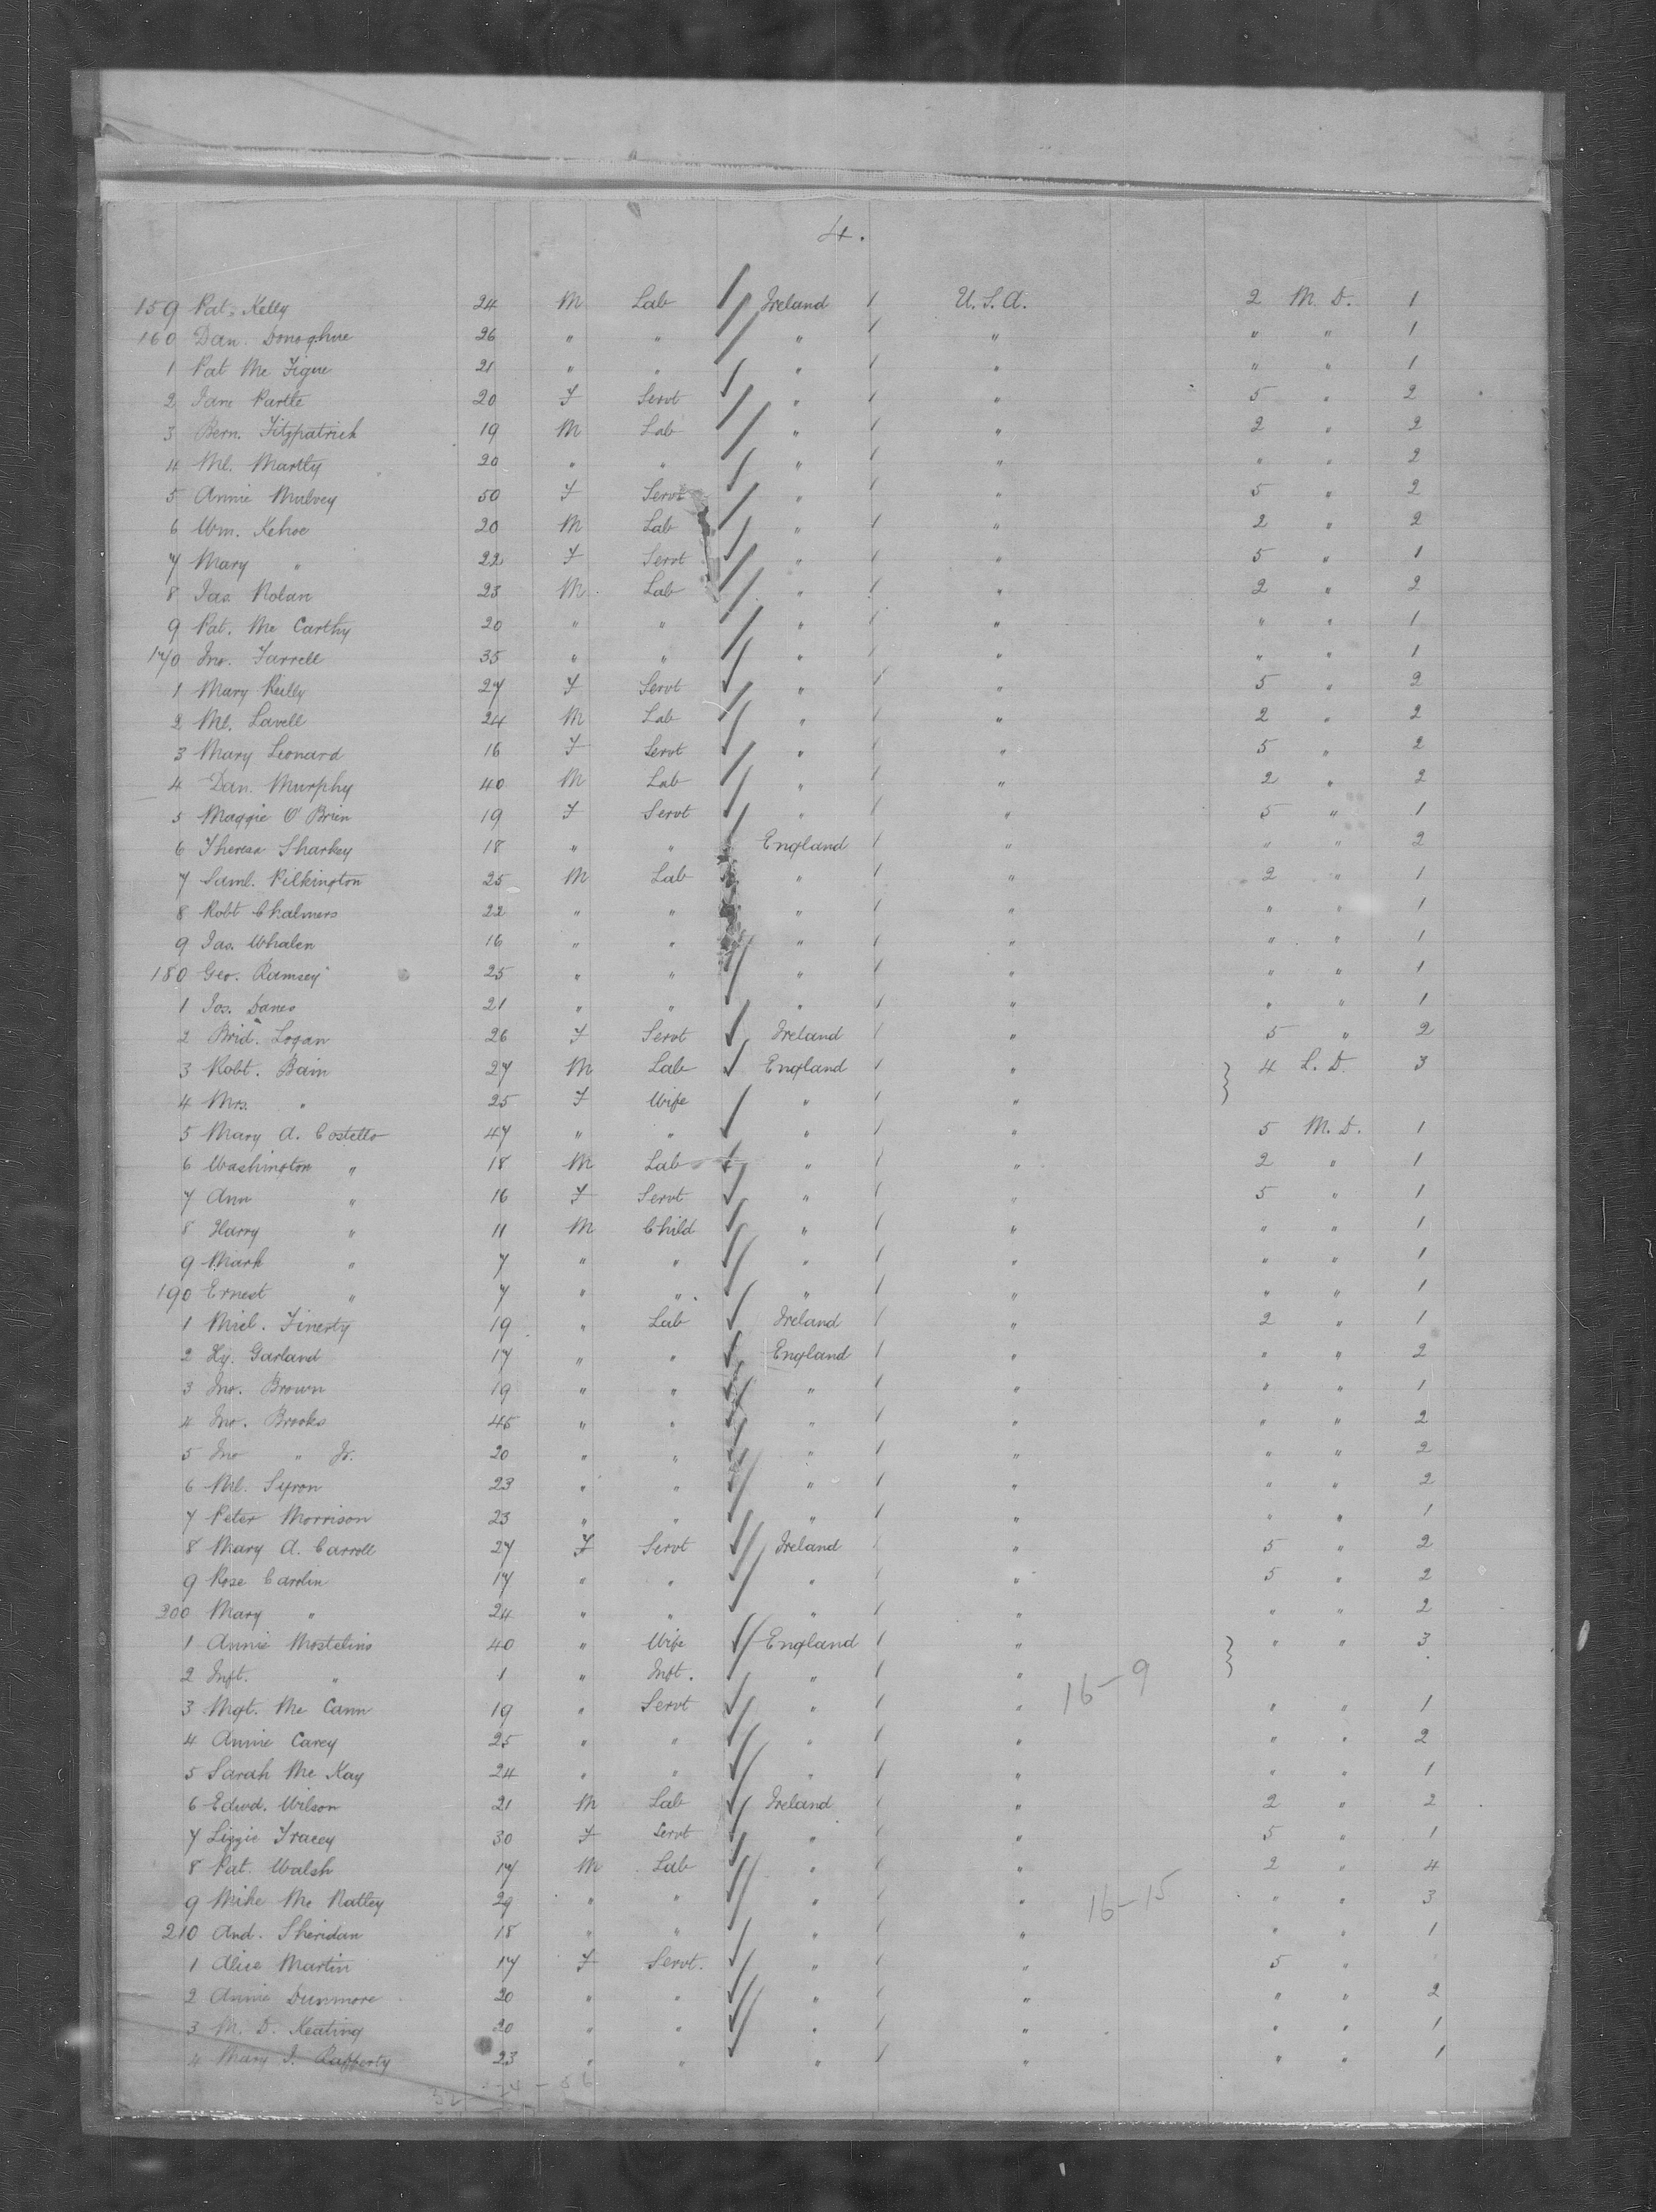 4.
159 Pat. Kelly 24 M Lab Ireland / U.S.A. 2 M.D. 1
160 Dan. Donoghue 26 " " " / " " " 1
1 Pat Mc Tigue 21 " " " / " " " 1
2 Jane Partle 20 F Servt " / " 5 " 2
3 Bern. Fitzpatrick 19 M Lab " / " 2 " 2
4 Ml. Martly 20 " " " / " " " 2
5 Annie Mulvey 50 F Servt " / " 5 " 2
6 Wm. Kehoe 20 M Lab " / " 2 " 2
7 Mary " 22 F Servt " / " 5 " 1
8 Jas Nolan 23 M Lab " / " 2 " 2
9 Pat. Mc Carthy 20 " " " / " " " 1
170 Jno. Farrell 35 " " " / " " " 1
1 Mary Reilly 27 F Servt " / " 5 " 2
2 Ml. Lavell 24 M Lab " / " 2 " 2
3 Mary Leonard 16 F Servt " / " 5 " 2
4 Dan. Murphy 40 M Lab " / " 2 " 2
5 Maggie O'Brien 19 F Servt " / " 5 " 1
6 Theresa Sharkey 18 " " England / " " " 2
7 Saml. Pilkington 25 M Lab " / " 2 " 1
8 Robt Chalmers 22 " " " / " " " 1
9 Jas. Whalen 16 " " " / " " " 1
180 Geo. Ramsey 25 " " " / " " " 1
1 Jos. Danes 21 " " " / " " " 1
2 Brid. Logan 26 F Servt Ireland / " 5 " 2
3 Robt. Bain 27 M Lab England / " 4 L.D. 3
4 Mrs. " 25 F Wife " / "
5 Mary A. Costello 47 " " " / " 5 M.D. 1
6 Washington " 18 M Lab " / " 2 " 1
7 Ann " 16 F Servt " / " 5 " 1
8 Harry " 11 M Child " / " " " 1
9 Mark " 7 " " " / " " " 1
190 Ernest " 7 " " " / " " " 1
1 Micl. Finerty 19 " Lab Ireland / " 2 " 1
2 Hy. Garland 17 " " England / " " " 2
3 Jno. Brown 19 " " " / " " " 1
4 Jno. Brooks 45 " " " / " " " 2
5 Jno " Jr. 20 " " " / " " " 2
6 Ml. Syron 23 " " " / " " " 2
7 Peter Morrison 23 " " " / " " " 1
8 Mary A. Carroll 27 F Servt Ireland / " 5 " 2
9 Rose Carolin 17 " " " / " 5 " 2
200 Mary " 24 " " " / " " " 2
1 Annie Mostelins 40 " Wife England / " " " 3
2 Inft. " 1 " Inft. " / " 16-9
3 Mgt. Mc Cann 19 " Servt " / " " " 1
4 Annie Carey 25 " " " / " " " 2
5 Sarah Mc Kay 24 " " " / " " " 1
6 Edwd. Wilson 21 M Lab Ireland / " 2 " 2
7 Lizzie Tracey 30 F Servt " / " 5 " 1
8 Pat. Walsh 17 M Lab " / " 2 " 4
9 Mike Mc Nalley 29 " " " / " 16-15 " " 3
210 And. Sheridan 18 " " " / " " " 1
1 Alice Martin 17 F Servt. " / " 5 "
2 Annie Dunmore 20 " " " / " " " 2
3 M. D. Keating 20 " " " / " " " 1
4 Mary J. Rafferty 23 " " " / " " " 1